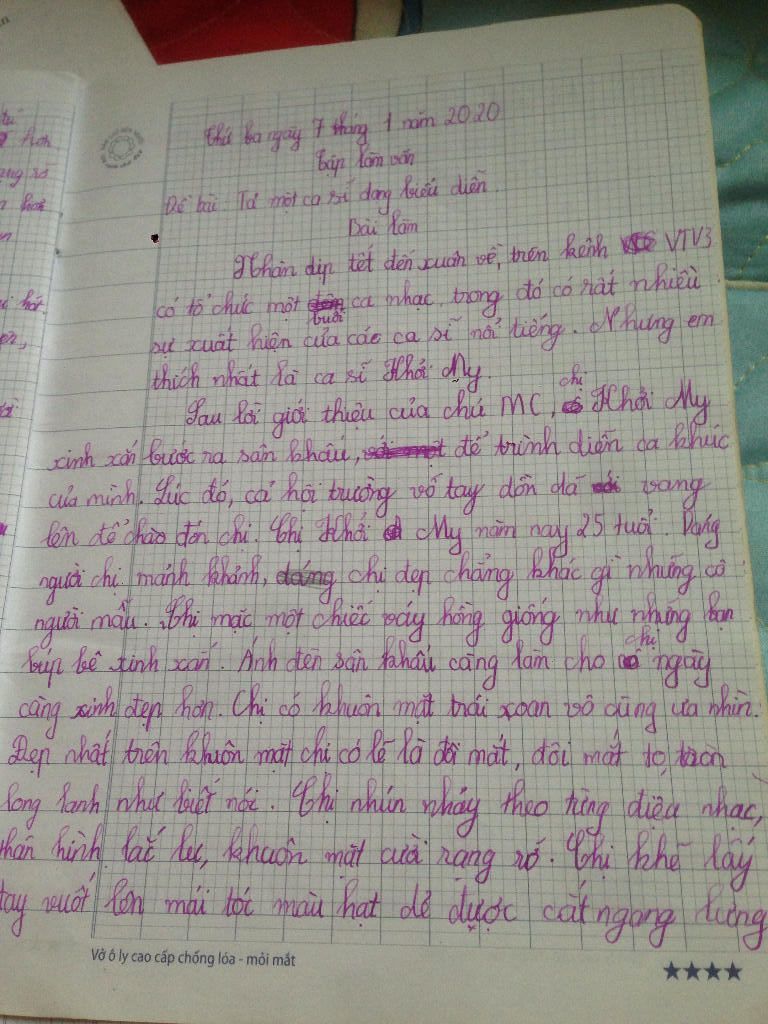 Thứ ba ngày 7 tháng 1 năm 2020
Tập làm văn
Đề bài: Tả một ca sĩ đang biểu diễn.
Bài làm
Nhân dịp tết đến xuân về, trên kênh VTV3
có tổ chức một buổi ca nhạc, trong đó có rất nhiều
sự xuất hiện của các ca sĩ nổi tiếng. Nhưng em
thích nhất là ca sĩ Khởi My.
Sau lời giới thiệu của chú MC, chị Khởi My
xinh xắn bước ra sân khấu, để trình diễn ca khúc
của mình. Lúc đó, cả hội trường vỗ tay dồn dã vang
lên để chào đón chị. Chị Khởi My năm nay 25 tuổi. Dáng
người chị mảnh khảnh, chị đẹp chẳng khác gì những cô
người mẫu. Chị mặc một chiếc váy hồng giống như những bạn
búp bê xinh xắn. Ánh đèn sân khấu càng làm cho chị ngày
càng xinh đẹp hơn. Chị có khuôn mặt trái xoan vô cùng ưa nhìn.
Đẹp nhất trên khuôn mặt chị có lẽ là đôi mắt, đôi mắt to, tròn
long lanh như biết nói. Chị nhún nhảy theo từng điệu nhạc,
thân hình lắc lư, khuôn mặt cười rạng rỡ. Chị khẽ lấy
tay vuốt lên mái tóc màu hạt dẻ được cắt ngang lưng
Vở ô ly cao cấp chống lóa - mỏi mắt